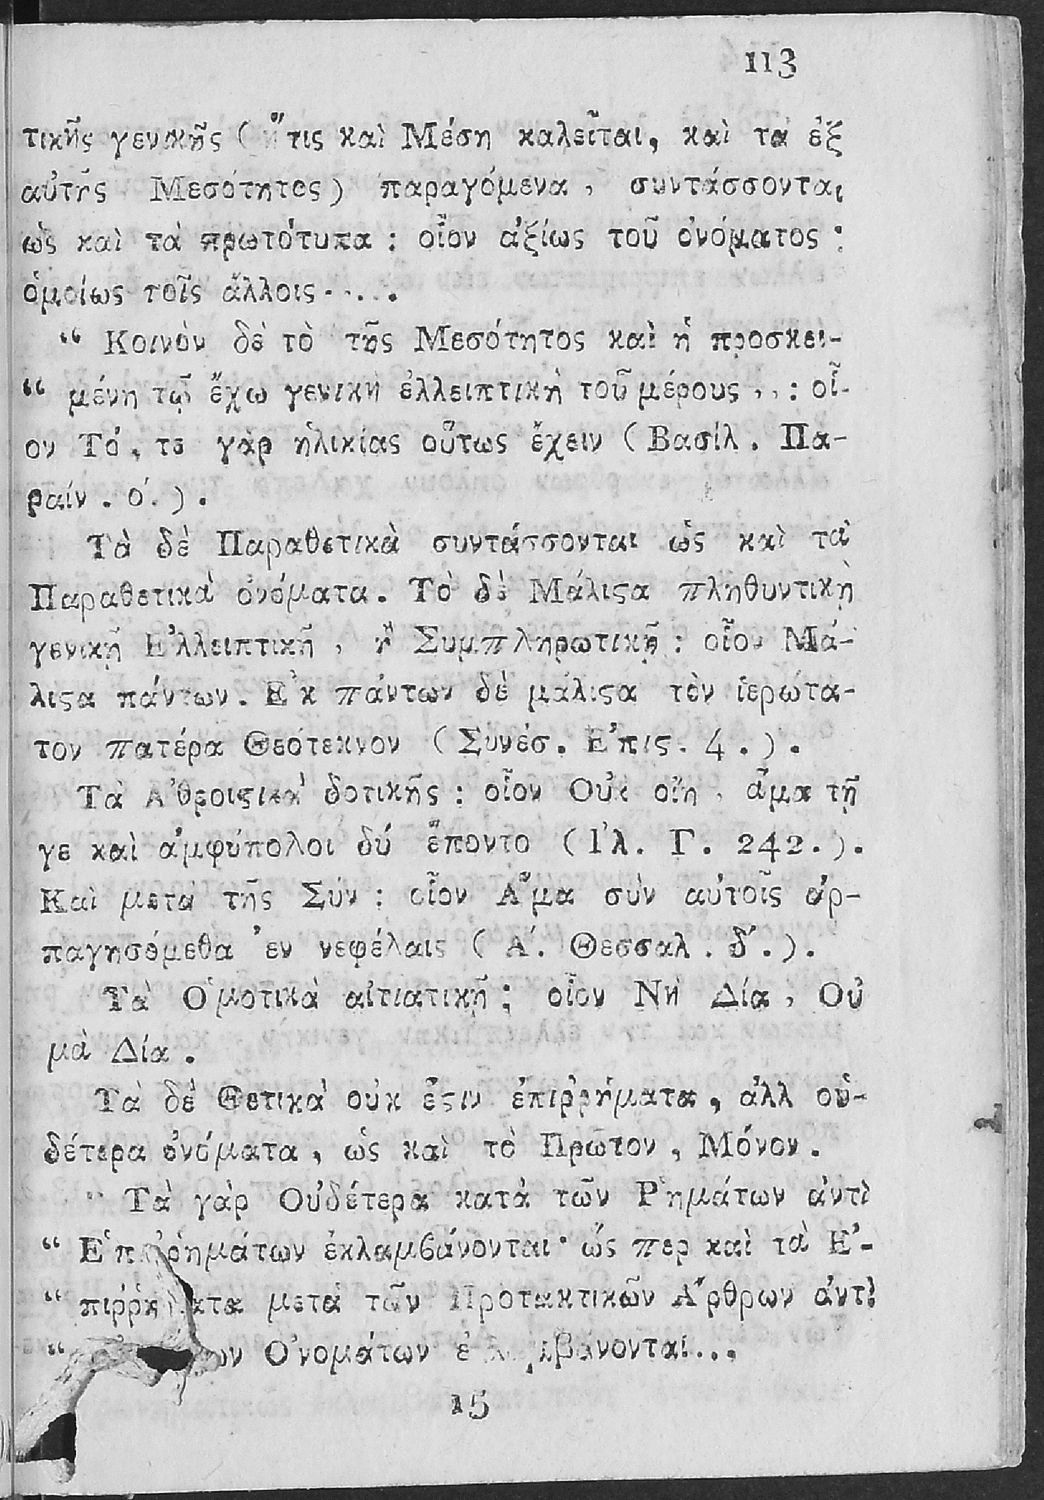 113
τικῆς γενικῆς ( ἥτις καὶ Μέση καλεῖται, καὶ τα ἐξ
αὐτῆς Μεσότητος) παραγόμενα, συντάσσονται
ὡς καὶ τὰ πρωτότυπα : οἷον ἀξίως τοῦ ὀνόματος :
ὁμοίως τοῖς ἄλλοις ....
“ Κοινὸν δὲ τὸ τῆς Μεσότητος καὶ ἡ προσκει-
“ μένη τῷ ἔχω γενικὴ ἐλλειπτικὴ τοῦ μέρους ,, : οἷ-
ον Τό, το γὰρ ἡλικίας οὕτως ἔχειν ( Βασίλ. Πα-
ραίν. ό. ) .
Τὰ δὲ Παραθετικὰ συντάσσονται ὡς καὶ τὰ
Παραθετικὰ ὀνόματα. Τὸ δὲ Μάλιϛα πληθυντικῇ
γενικῇ Ἐλλειπτικῇ, ἢ Συμπληρωτικῇ : οἷον Μά-
λιϛα πάντων. Ἐκ πάντων δὲ μάλιϛα τὸν ἱερώτα-
τον πατέρα Θεότεκνον ( Συνέσ. Ἐπιϛ. 4. ) .
Τὰ Ἀθροιϛικὰ δοτικῆς : οἷον Οὐκ οἴη, ἅμα τῇ
γε καὶ ἀμφύπολοι δύ ἕποντο ( Ἰλ. Γ. 242. ) .
Καὶ μετα τῆς Σύν : οἷον Ἅμα σὺν αὐτοῖς ἁρ-
παγησόμεθα ἐν νεφέλαις ( Ά. Θεσσαλ. δ΄. ) .
Τὰ Ὁμοτικὰ αἰτιατικῇ : οἷον Νὴ Δία, Οὐ
μὰ Δία.
Τὰ δὲ Θετικὰ οὐκ ἔϛιν ἐπιῤῥήματα, ἀλλ οὐ-
δέτερα ὀνόματα, ὡς καὶ τὸ Πρῶτον, Μόνον.
“ Τὰ γὰρ Οὐδέτερα κατὰ τῶν Ῥημάτων ἀντὶ
“ Ἐπιῤῥημάτων ἐκλαμβάνονται· ὥς περ καὶ τὰ Ἐ-
“ πιῤῥήματα μετὰ τῶν Προτακτικῶν Ἄρθρων ἀντὶ
“ Ὀνομάτων ἐκλαμβάνονται...
15